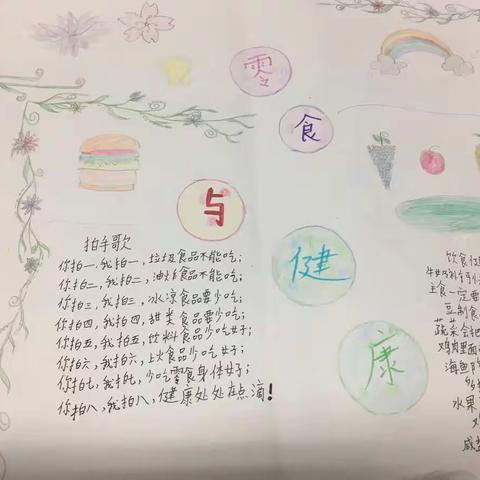 零
食
与
健
康
拍手歌
你拍一,我拍一,垃圾食品不能吃;
你拍二,我拍二,油炸食品不能吃;
你拍三,我拍三,冰凉食品要少吃;
你拍四,我拍四,甜类食品要少吃;
你拍五,我拍五,饮料食品少吃好;
你拍六,我拍六,上火食品少吃好;
你拍七,我拍七,少吃零食身体好;
你拍八,我拍八,健康处处在点滴!
饮食
主食一定要
豆制食
蔬菜会把
鸡肉里面
海鱼
多
水果
咸